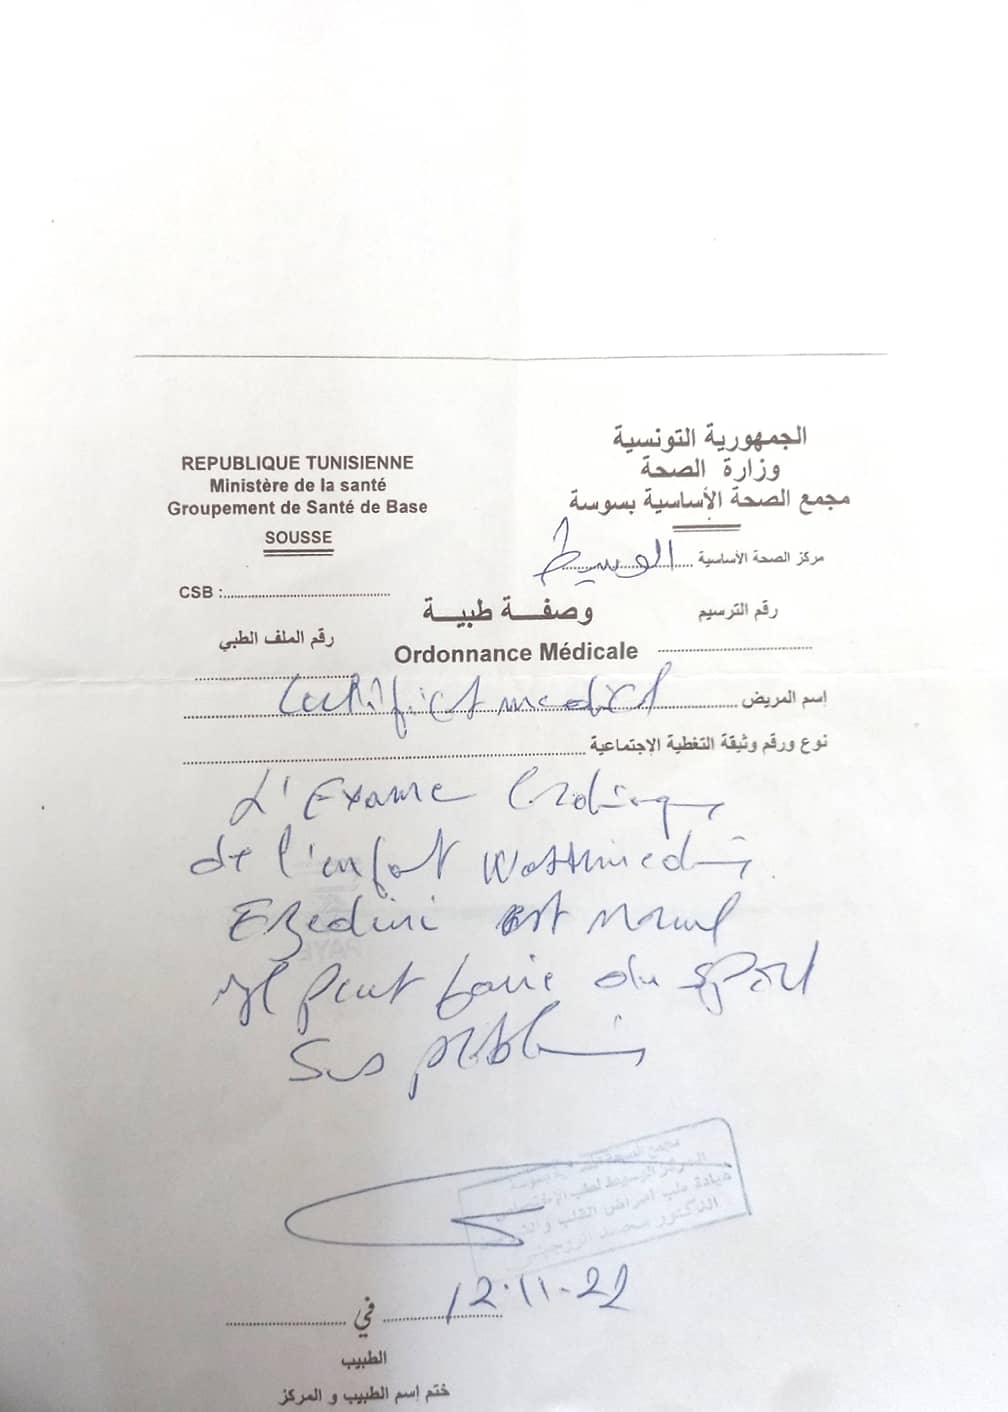 الجمهورية التونسية
وزارة الصحة
مجمع الصحة الأساسية بسوسة
REPUBLIQUE TUNISIENNE
Ministère de la santé
Groupement de Santé de Base
SOUSSE
مركز الصحة الأساسية الوسيط
CSB :
رقم الترسيم
وصفة طبية
رقم الملف الطبي
Ordonnance Médicale
إسم المريض Certificat medical
نوع ورقم وثيقة التغطية الإجتماعية
L'Examen
de l'enfant
Ezedini est normal
il peut faire du sport
sans problème
عيادة طب أمراض القلب
الدكتور محمد
في 12.11-22
الطبيب
ختم إسم الطبيب و المركز